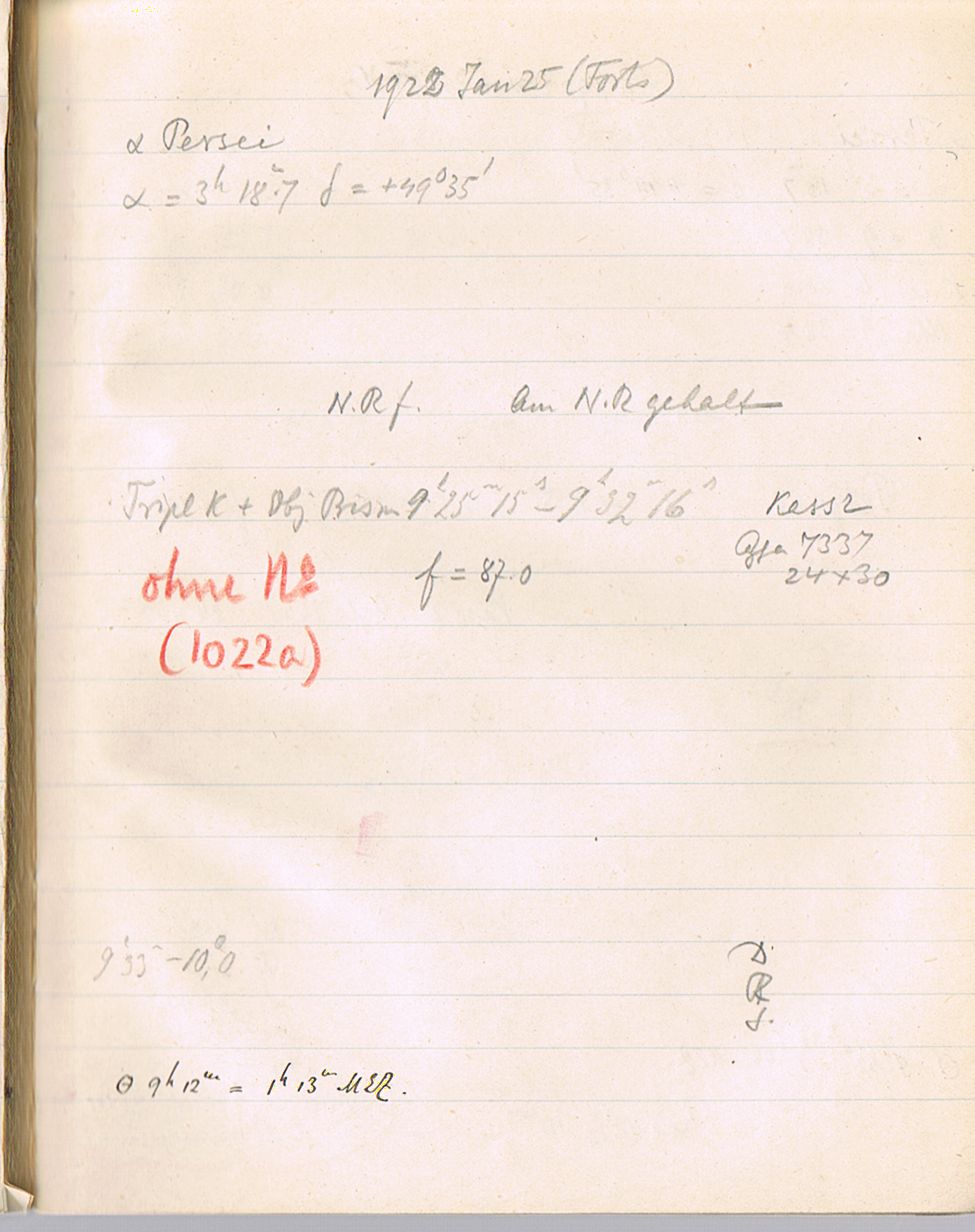 1922 Jan 25 (Forts)
α Persei
α = 3h 18m.7 δ = +49° 35'
N.R f. Am N.R gehalt
Tripl K + Obj Prism 9h 25m 15s – 9h 32m 16s Kass 2
Agfa 7337
ohne No f = 87.0 24 x 30
(1022a)
9h 33m –10,°0
D.
R
S.
Θ 9h 12m = 1h 13m MEZ.